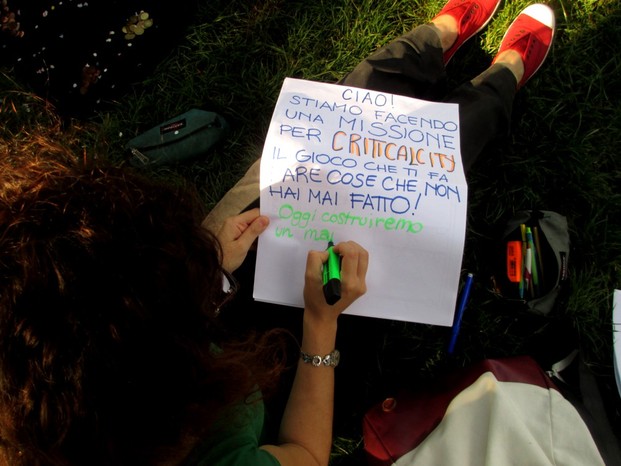 CIAO!
STIAMO FACENDO
UNA MISSIONE
PER CRITICALCITY
IL GIOCO CHE TI FA
ARE COSE CHE, NON
HAI MAI FATTO!
Oggi costruiremo
un ma